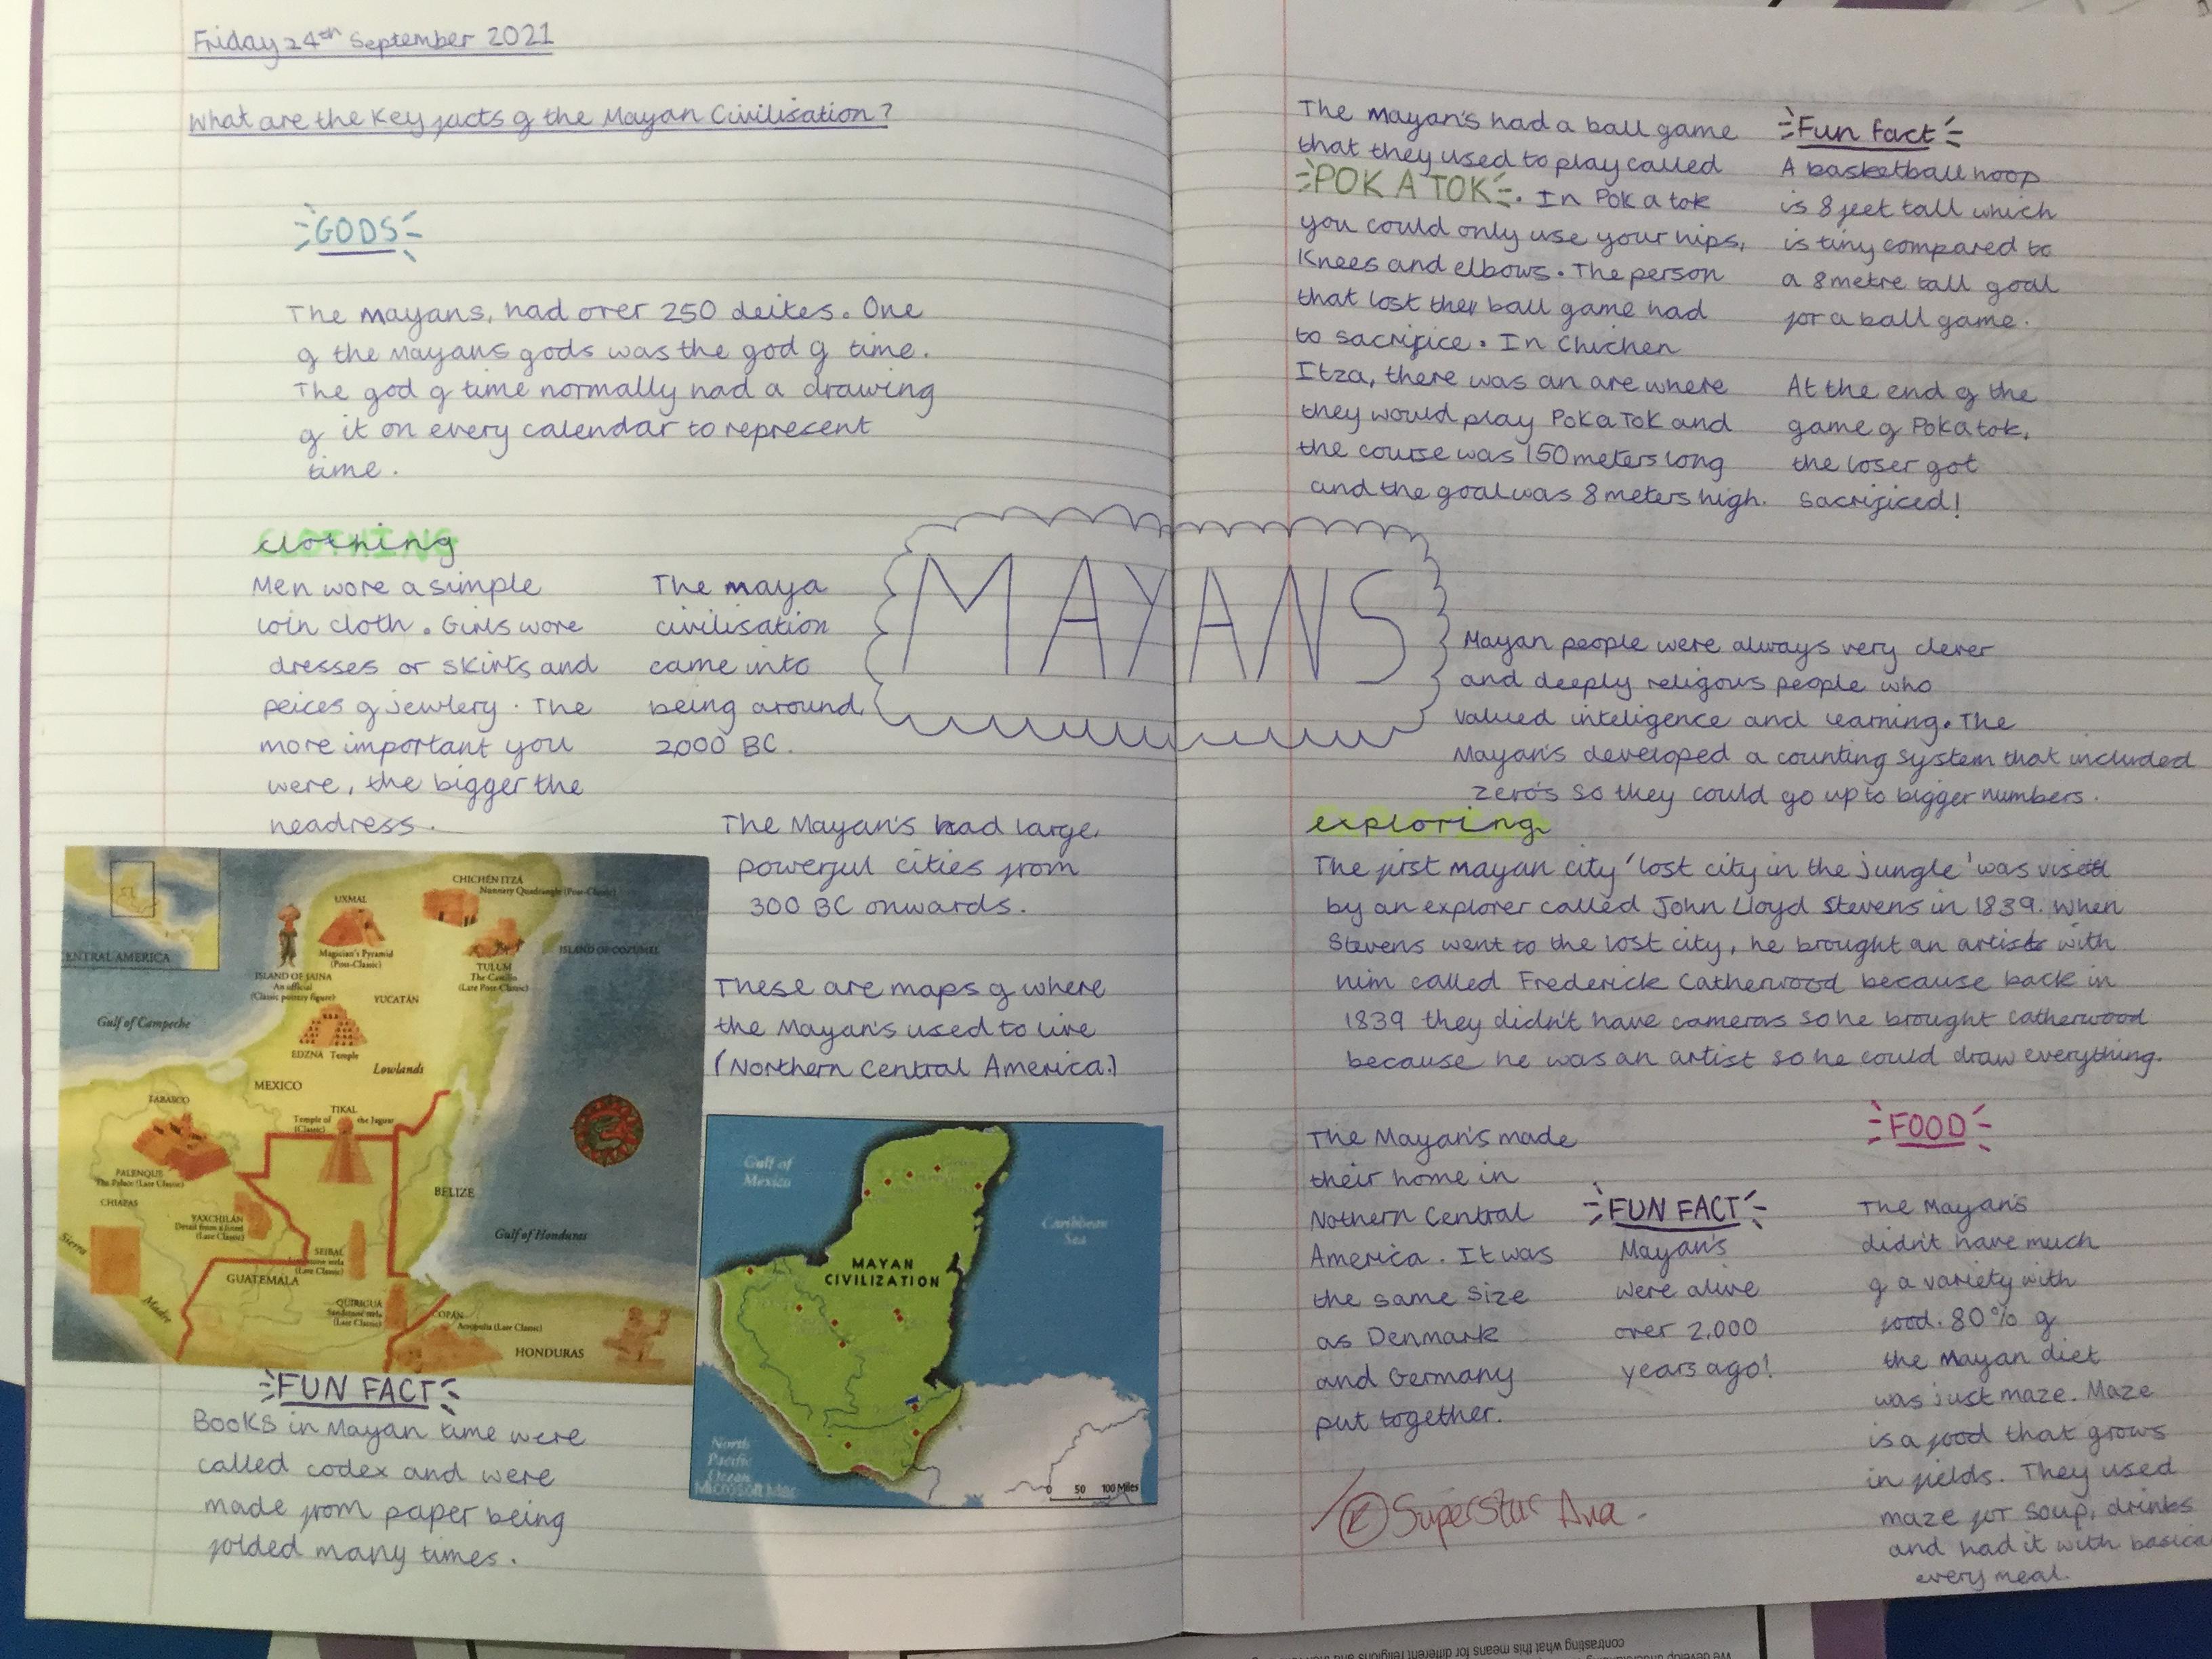 Friday 24th September 2021
What are the key facts of the Mayan Civilisation?
GODS
The Mayans, had over 250 deites. One
of the Mayans gods was the god of time.
The god of time normally had a drawing
of it on every calendar to represent
time.
clothing
Men wore a simple
loin cloth. Girls wore
dresses or skirts and
peices of jewlery. The
more important you
were, the bigger the
headress.
The maya
civilisation
came into
being around
2000 BC.
MAYANS
The Mayan's had large,
powerful cities from
300 BC onwards.
These are maps of where
the Mayan's used to live
(Northern Central America.)
CENTRAL AMERICA
UXMAL
Magician's Pyramid
(Post-Classic)
CHICHÉN ITZÁ
Nunnery Quadrangle (Post-Classic)
ISLAND OF COZUMEL
TULUM
The Castillo
(Late Post-Classic)
ISLAND OF JAINA
An official
(Classic pottery figure)
YUCATÁN
Gulf of Campeche
EDZNA Temple
Lowlands
MEXICO
TABASCO
TIKAL
Temple of the Jaguar
(Classic)
PALENQUE
The Palace (Late Classic)
CHIAPAS
BELIZE
YAXCHILÁN
Detail from a lintel
(Late Classic)
Gulf of Honduras
Sierra
SEIBAL
(Late Classic)
GUATEMALA
Madre
QUIRIGUÁ
Sandstone stela
(Late Classic)
COPÁN
Acropolis (Late Classic)
HONDURAS
Gulf of
Mexico
Caribbean
Sea
MAYAN
CIVILIZATION
North
Pacific
Ocean
Microsoft Map
0 50 100 Miles
FUN FACT
Books in Mayan time were
called codex and were
made from paper being
folded many times.
The Mayan's had a ball game
that they used to play called
POK A TOK. In Pok a tok
you could only use your hips,
knees and elbows. The person
that lost the ball game had
to sacrifice. In Chichen
Itza, there was an are where
they would play Pok a Tok and
the course was 150 meters long
and the goal was 8 meters high.
Fun fact
A basketball hoop
is 8 feet tall which
is tiny compared to
a 8 metre tall goal
for a ball game.
At the end of the
game of Pok a tok,
the loser got
sacrificed!
Mayan people were always very clever
and deeply religous people who
valued inteligence and learning. The
Mayan's developed a counting system that included
zero's so they could go up to bigger numbers.
exploring
The first mayan city 'lost city in the jungle' was
by an explorer called John Lloyd Stevens in 1839. When
Stevens went to the lost city, he brought an artist with
him called Frederick Catherwood because back in
1839 they didn't have cameras so he brought catherwood
because he was an artist so he could draw everything.
The Mayan's made
their home in
Nothern Central
America. It was
the same size
as Denmark
and Germany
put together.
FUN FACT
Mayan's
were alive
over 2,000
years ago!
FOOD
The Mayan's
didn't have much
of a variety with
food. 80% of
the Mayan diet
was just maze. Maze
is a food that grows
in fields. They used
maze for soup, drinks
and had it with basica
every meal.
Superstar Ava.
contrasting what this means for different religions and